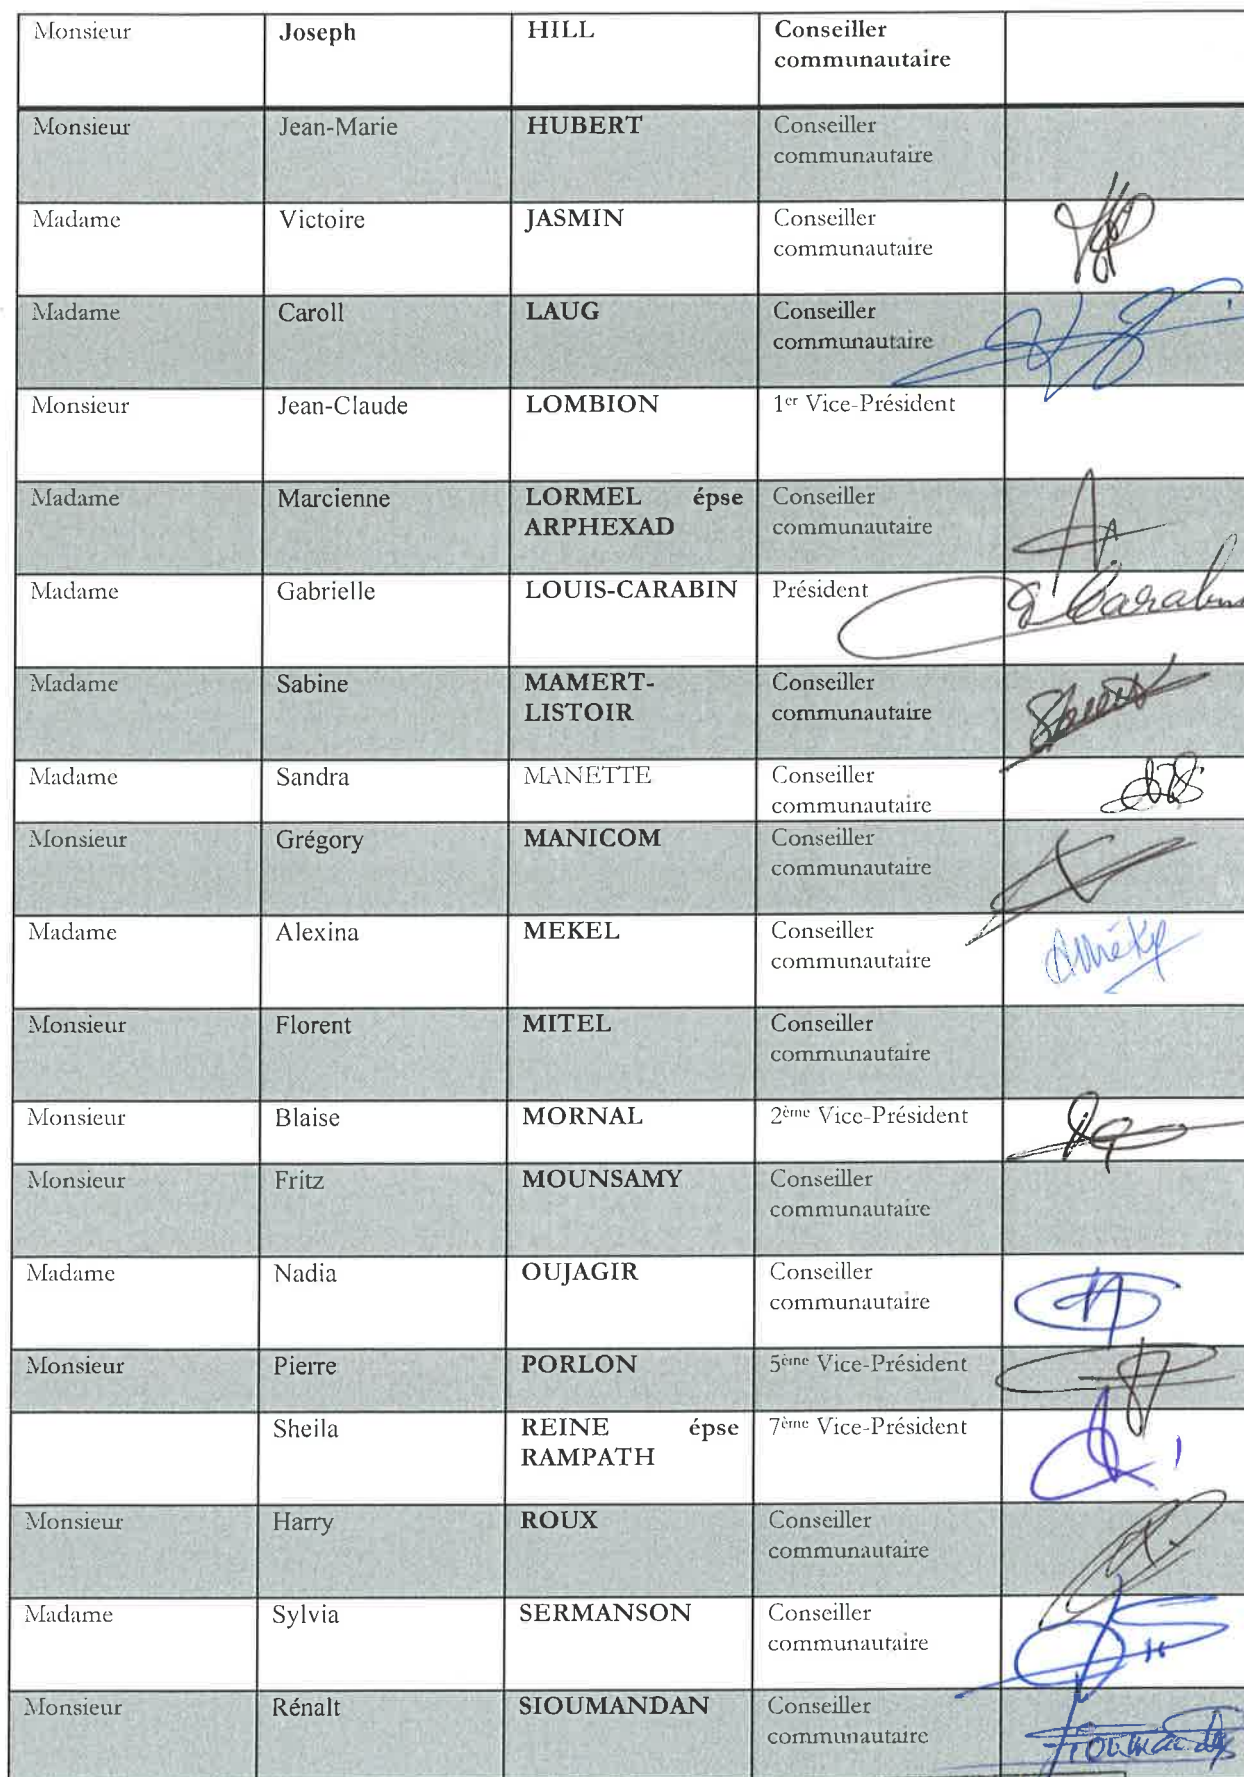 Monsieur Joseph HILL Conseiller
communautaire
Monsieur Jean-Marie HUBERT Conseiller
communautaire
Madame Victoire JASMIN Conseiller
communautaire
Madame Caroll LAUG Conseiller
communautaire
Monsieur Jean-Claude LOMBION 1er Vice-Président
Madame Marcienne LORMEL épse Conseiller
ARPHEXAD communautaire
Madame Gabrielle LOUIS-CARABIN Président
G Carabin
Madame Sabine MAMERT- Conseiller
LISTOIR communautaire
Madame Sandra MANETTE Conseiller
communautaire
Monsieur Grégory MANICOM Conseiller
communautaire
Madame Alexina MEKEL Conseiller
communautaire
Monsieur Florent MITEL Conseiller
communautaire
Monsieur Blaise MORNAL 2ème Vice-Président
Monsieur Fritz MOUNSAMY Conseiller
communautaire
Madame Nadia OUJAGIR Conseiller
communautaire
Monsieur Pierre PORLON 5ème Vice-Président
Sheila REINE épse 7ème Vice-Président
RAMPATH
Monsieur Harry ROUX Conseiller
communautaire
Madame Sylvia SERMANSON Conseiller
communautaire
Monsieur Rénalt SIOUMANDAN Conseiller
communautaire